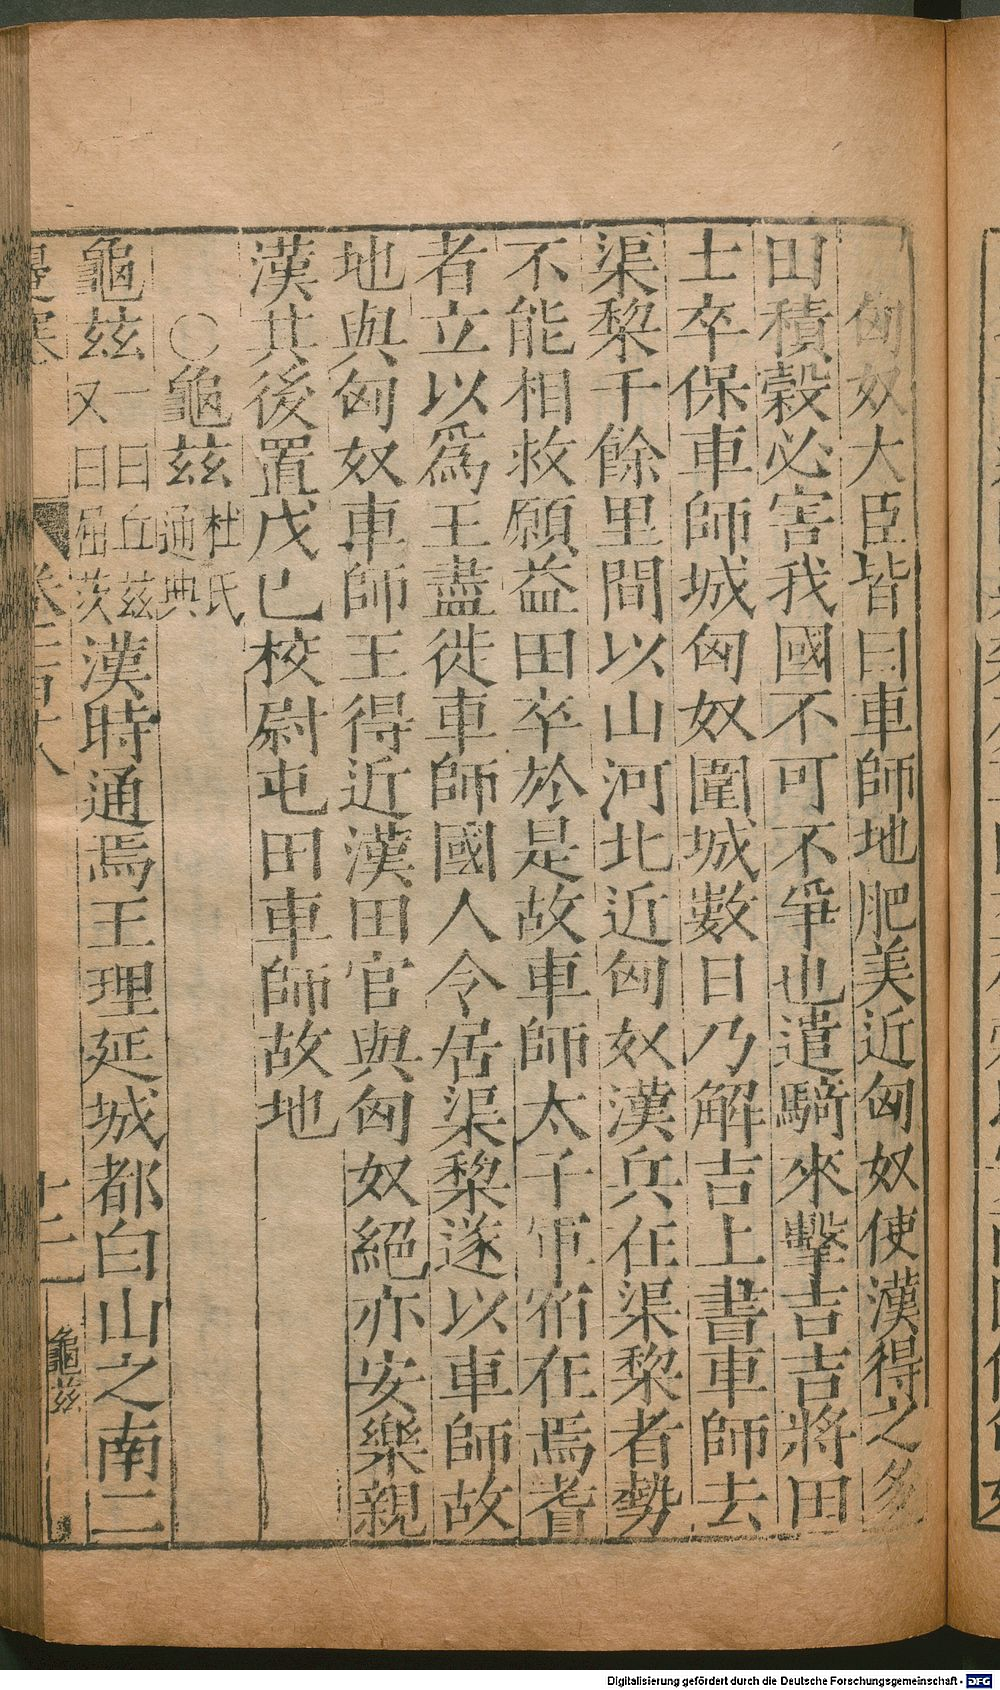 匈奴大臣皆曰車師地肥美近匈奴使漢得之多
田積穀必害我國不可不爭也遣騎來擊吉吉將田
士卒保車師城匈奴圍城數日乃解吉上書車師去
渠犂千餘里間以山河北近匈奴漢兵在渠犂者勢
不能相救願益田卒於是故車師太子軍宿在焉耆
者立以爲王盡徙車師國人令居渠犂遂以車師故
地與匈奴車師王得近漢田官與匈奴絕亦安樂親
漢其後置戊已校尉屯田車師故地
○龜玆杜氏通典
龜玆一曰丘玆又曰屈茨漢時通焉王理延城都白山之南二
邊塞
十二
龜玆
Digitalisierung gefördert durch die Deutsche Forschungsgemeinschaft - DFG